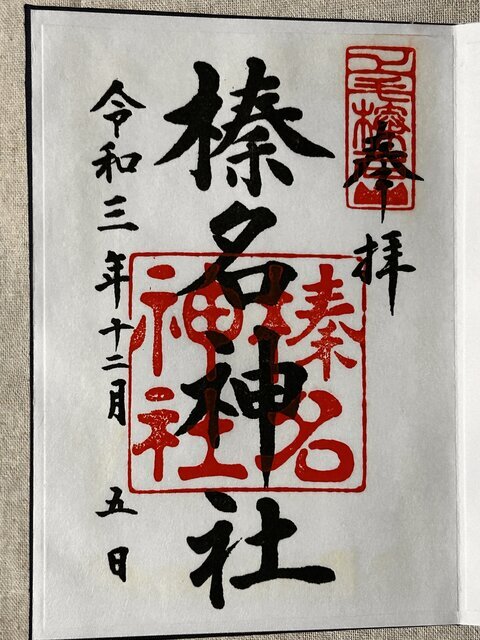 上毛榛名山
奉拝
榛名神社
榛名
神社
令和三年十二月五日